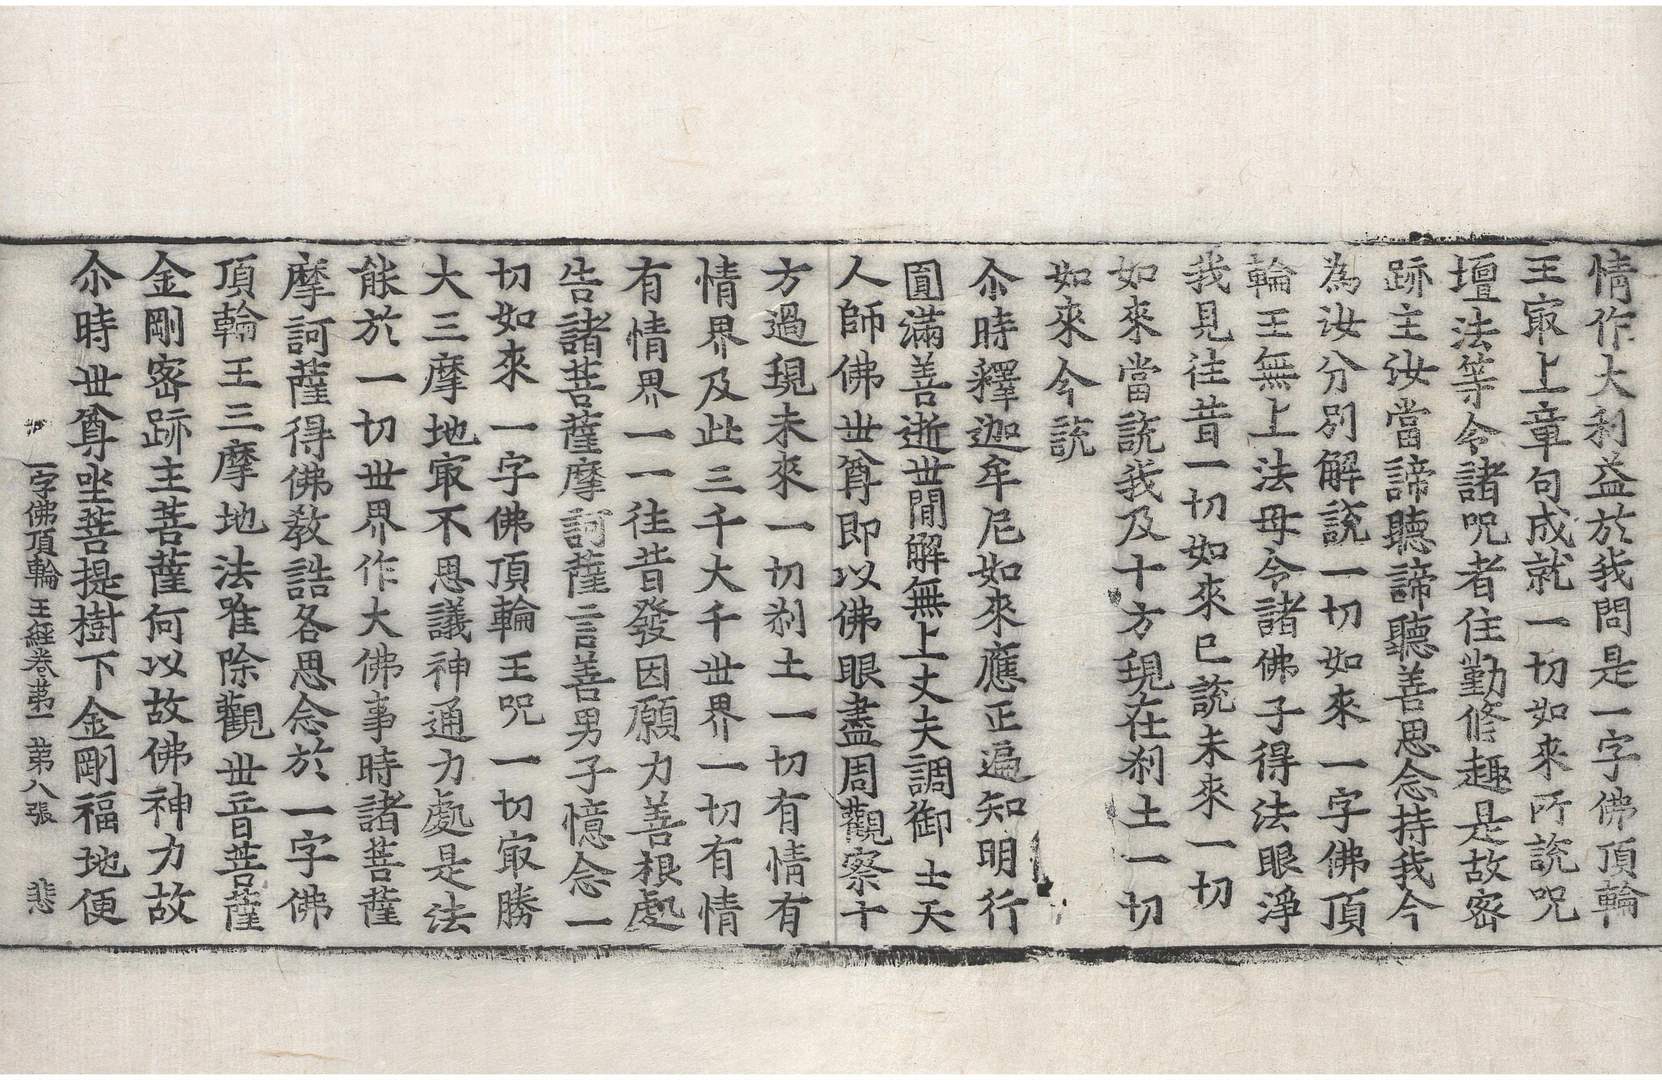 情作大利益於我問是一字佛頂輪
王㝡上章句成就一切如來所說呪
壇法等令諸呪者住勤修趣是故宻
跡主汝當諦聽諦聽善思念持我今
為汝分別解說一切如來一字佛頂
輪王無上法母令諸佛子得法眼淨
我見往昔一切如來已說未來一切
如來當說我及十方現在刹土一切
如來今說
尒時釋迦牟尼如來應正遍知明行
圓滿善逝世閒解無上丈夫調御士天
人師佛世尊即以佛眼盡周觀察十
方過現未來一切刹土一切有情有
情界及此三千大千世界一切有情
有情界一一往昔發因願力善根處
告諸菩薩摩訶薩言善男子憶念一
切如來一字佛頂輪王呪一切㝡勝
大三摩地㝡不思議神通力處是法
能於一切世界作大佛事時諸菩薩
摩訶薩得佛教誥各思念於一字佛
頂輪王三摩地法唯除觀世音菩薩
金剛宻跡主菩薩何以故佛神力故
尒時世尊坐菩提樹下金剛福地便
一字佛頂輪王經卷苐一 苐八張 悲